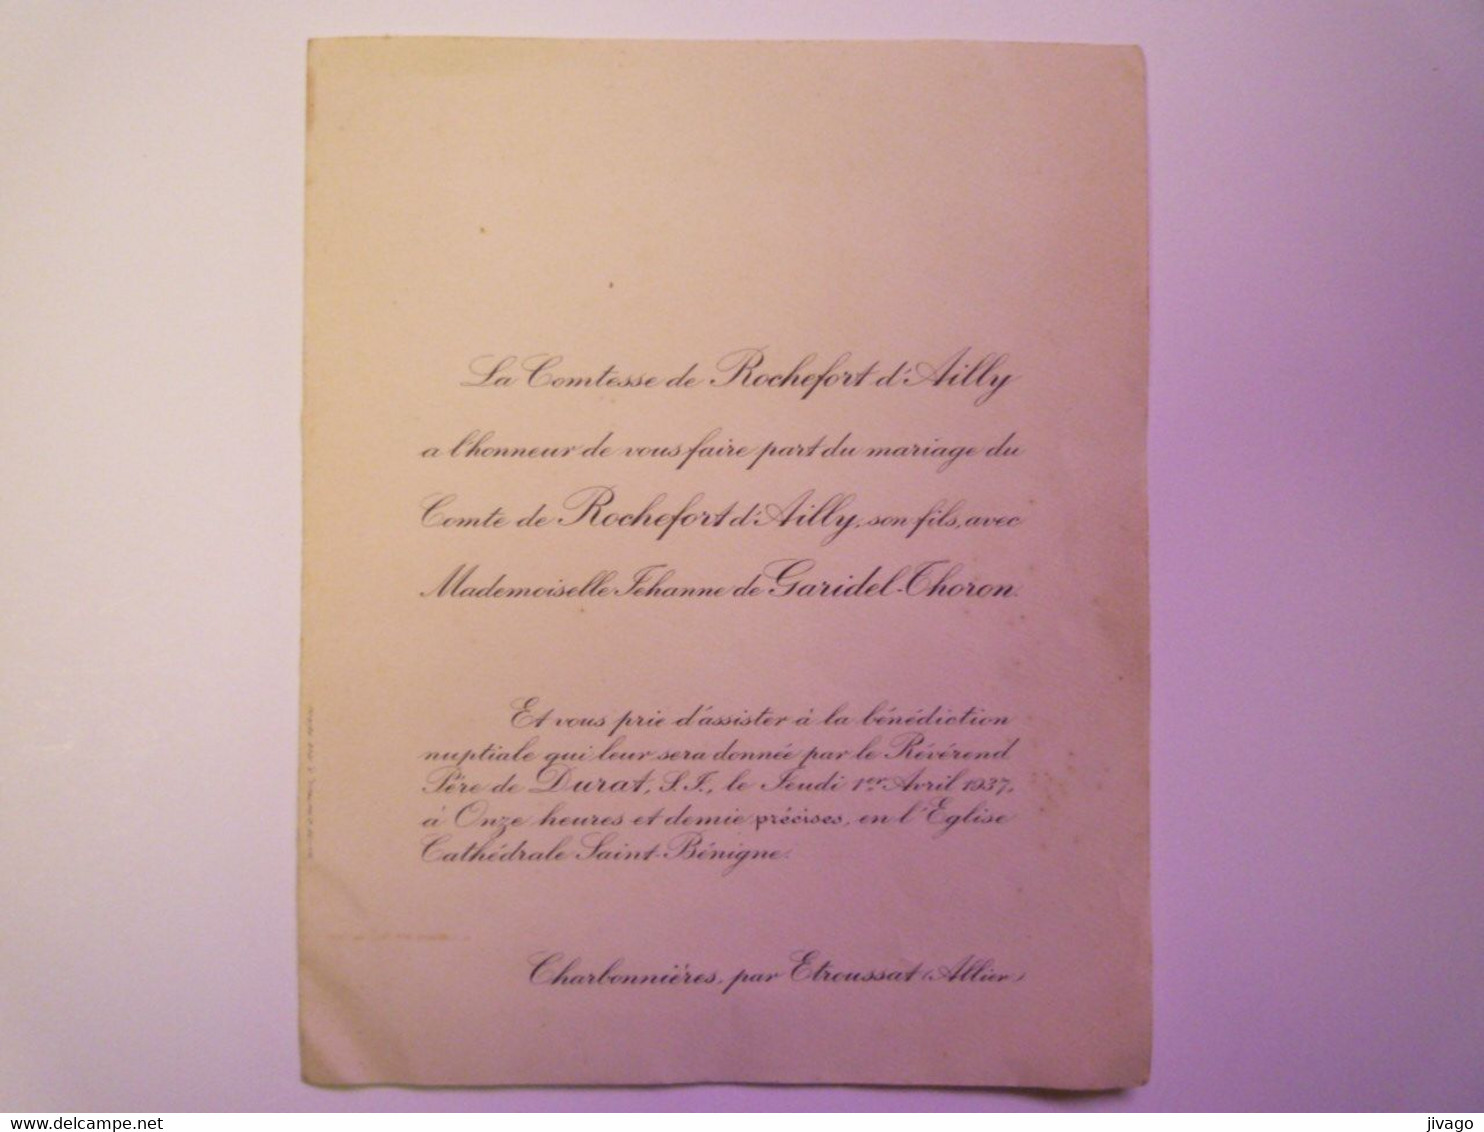 La Comtesse de Rochefort d'Ailly
a l'honneur de vous faire part du mariage du
Comte de Rochefort d'Ailly, son fils, avec
Mademoiselle Jehanne de Garidel-Thoron.
Et vous prie d'assister à la bénédiction
nuptiale qui leur sera donnée par le Révérend
Père de Durat, S.J., le Jeudi 1er Avril 1937,
à Onze heures et demie précises, en l'Eglise
Cathédrale Saint-Bénigne.
Charbonnières, par Etroussat (Allier)
www.delcampe.net
jivago